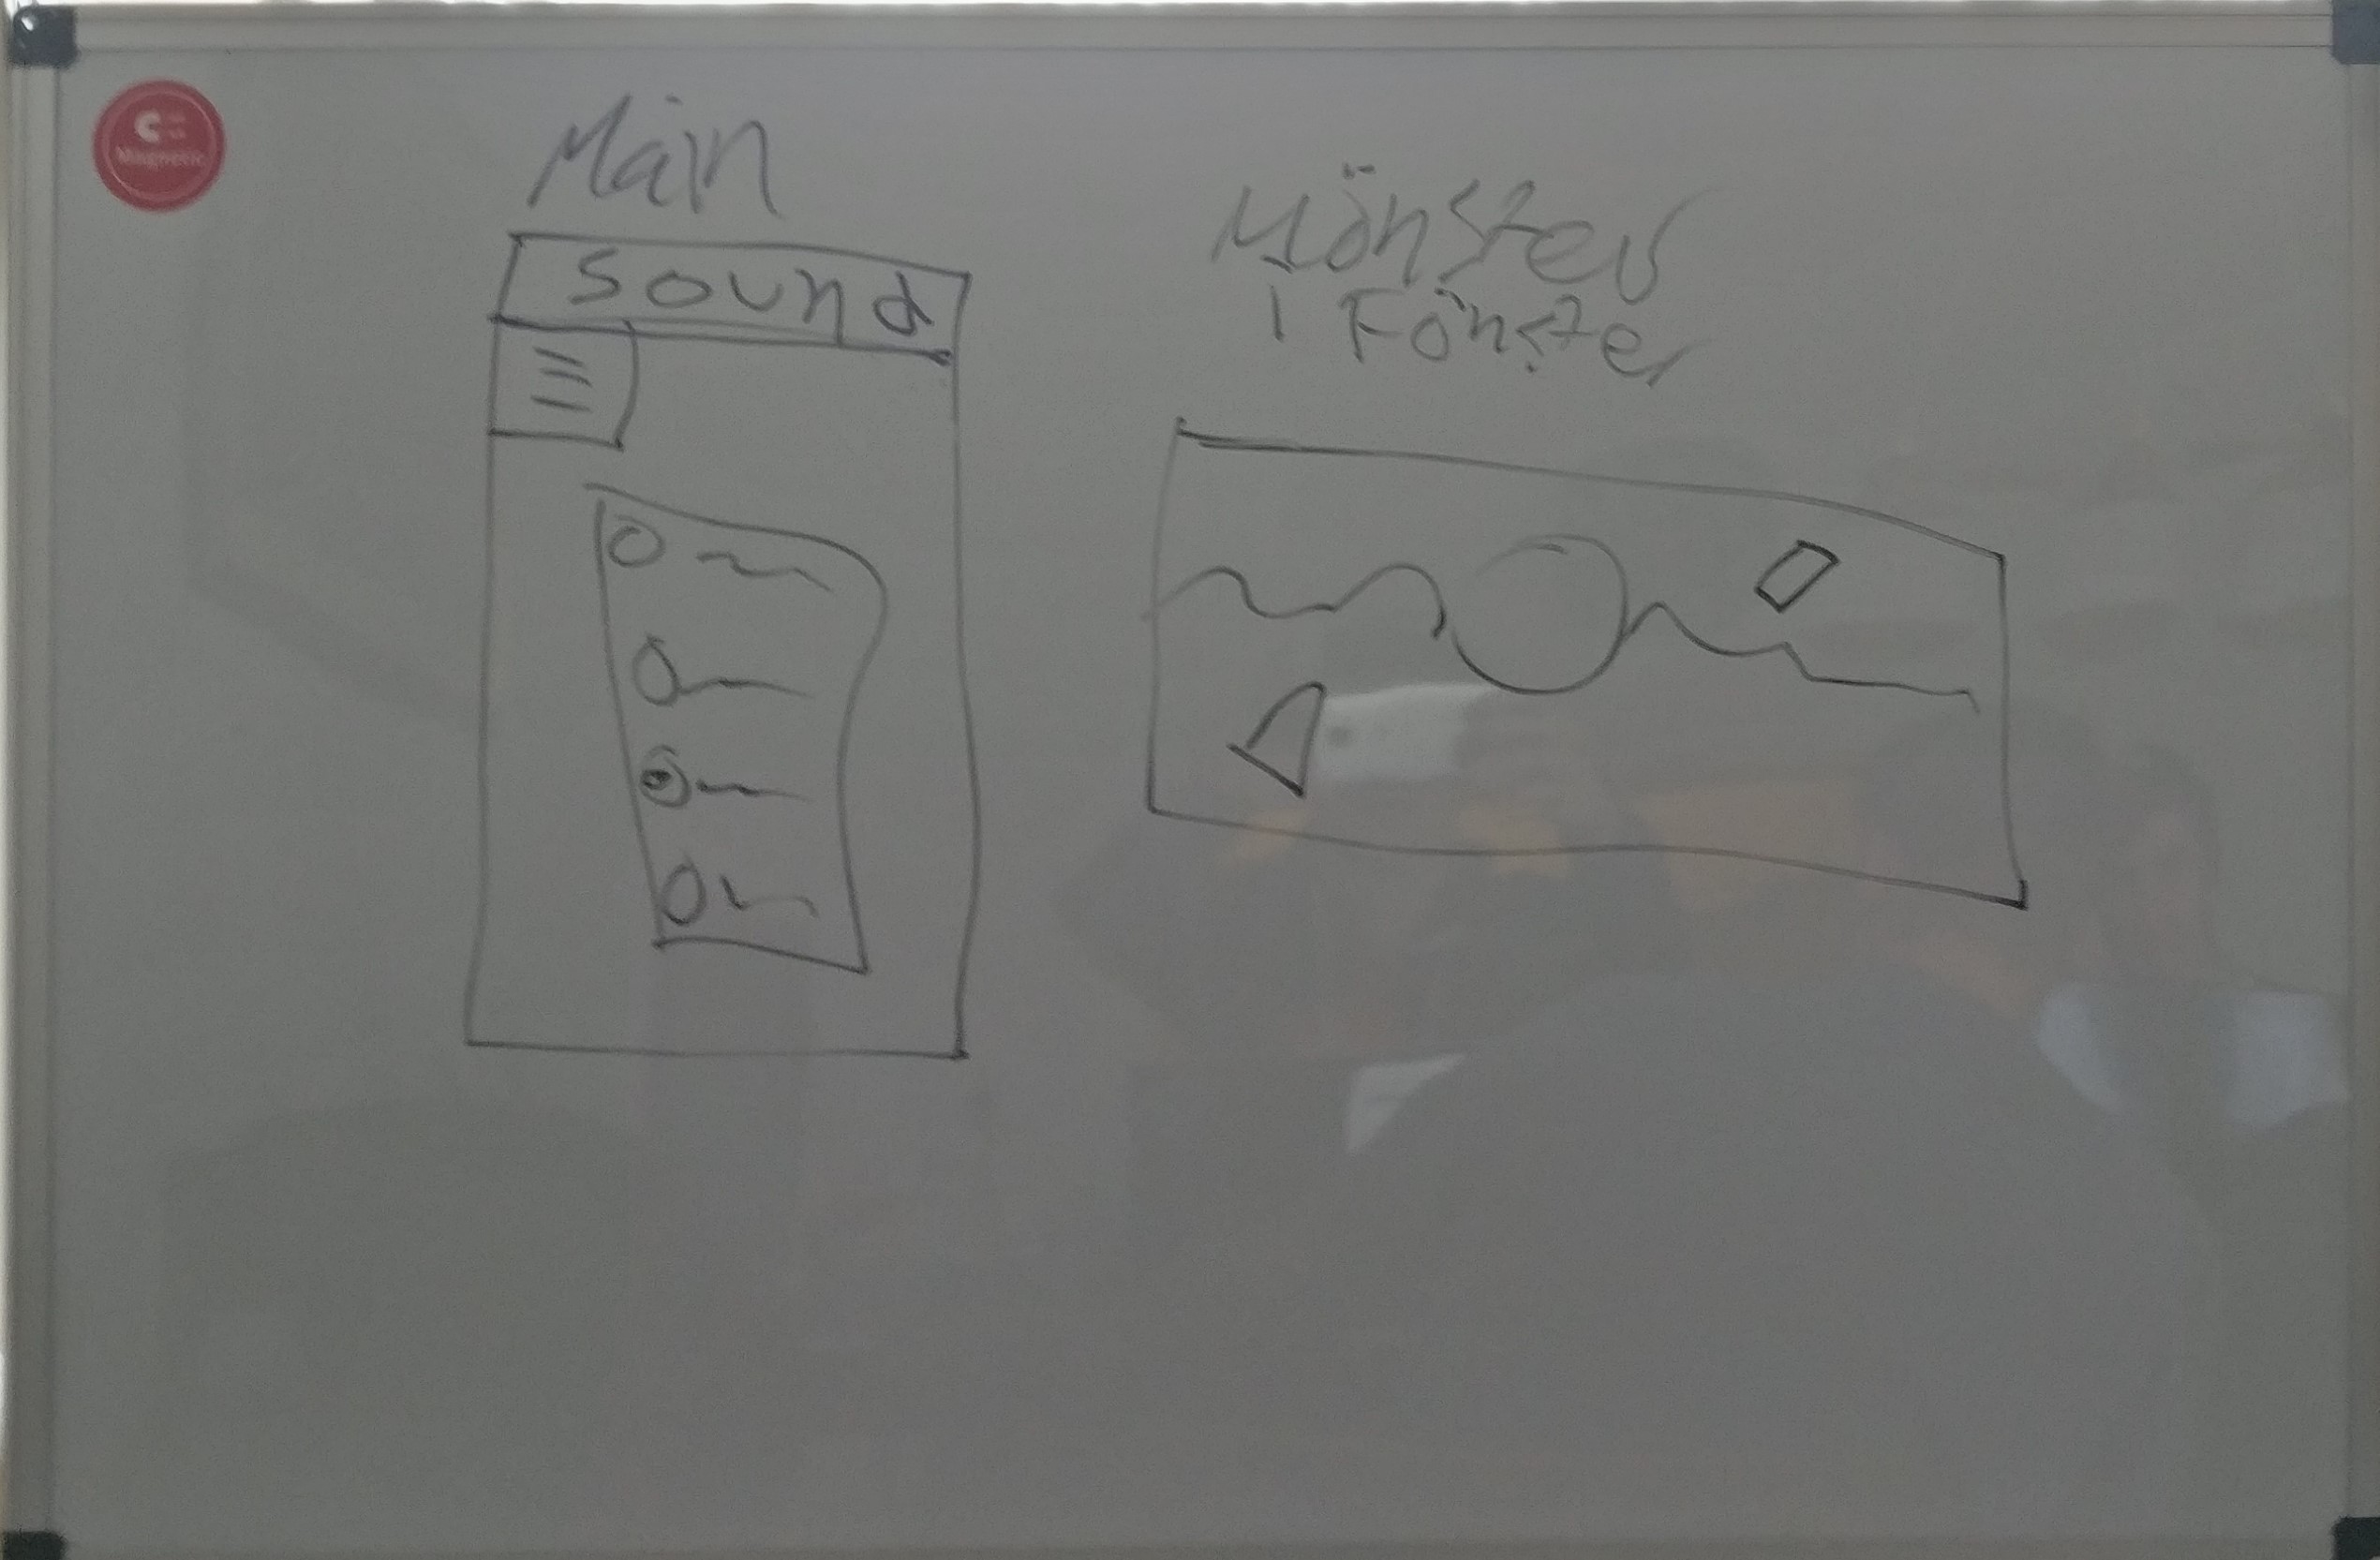 Magnetic
Main
Sound
Mönster
i Fönster